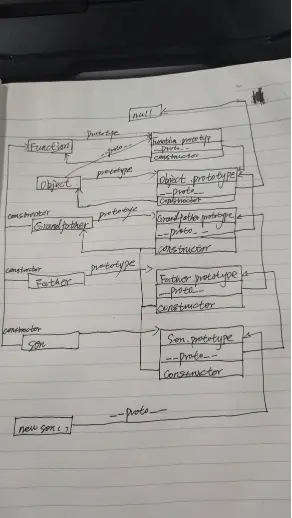 null
prototype
Function
Function.prototyp
__proto__
constructor
__proto__
prototype
Object
Object.prototype
__proto__
constructor
constructor
prototype
Grandfather
Grandfather.prototype
__proto__
constructor
constructor
prototype
Father
Father.prototype
__proto__
constructor
constructor
Son
Son.prototype
__proto__
constructor
__proto__
new son()